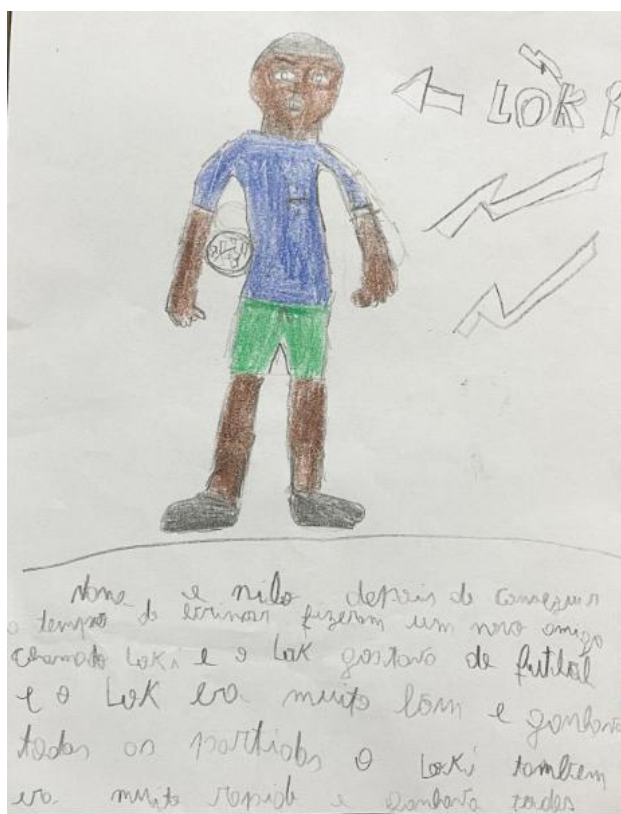 LOKi
e nilo depois de conseguir
o tempo de fizeram um novo amigo
chamado Loki e o Lok gostava de futbal
e o Lok era muito bom e ganhava
todas as partidas o Loki tambem
era muito rapido e ganhava todas